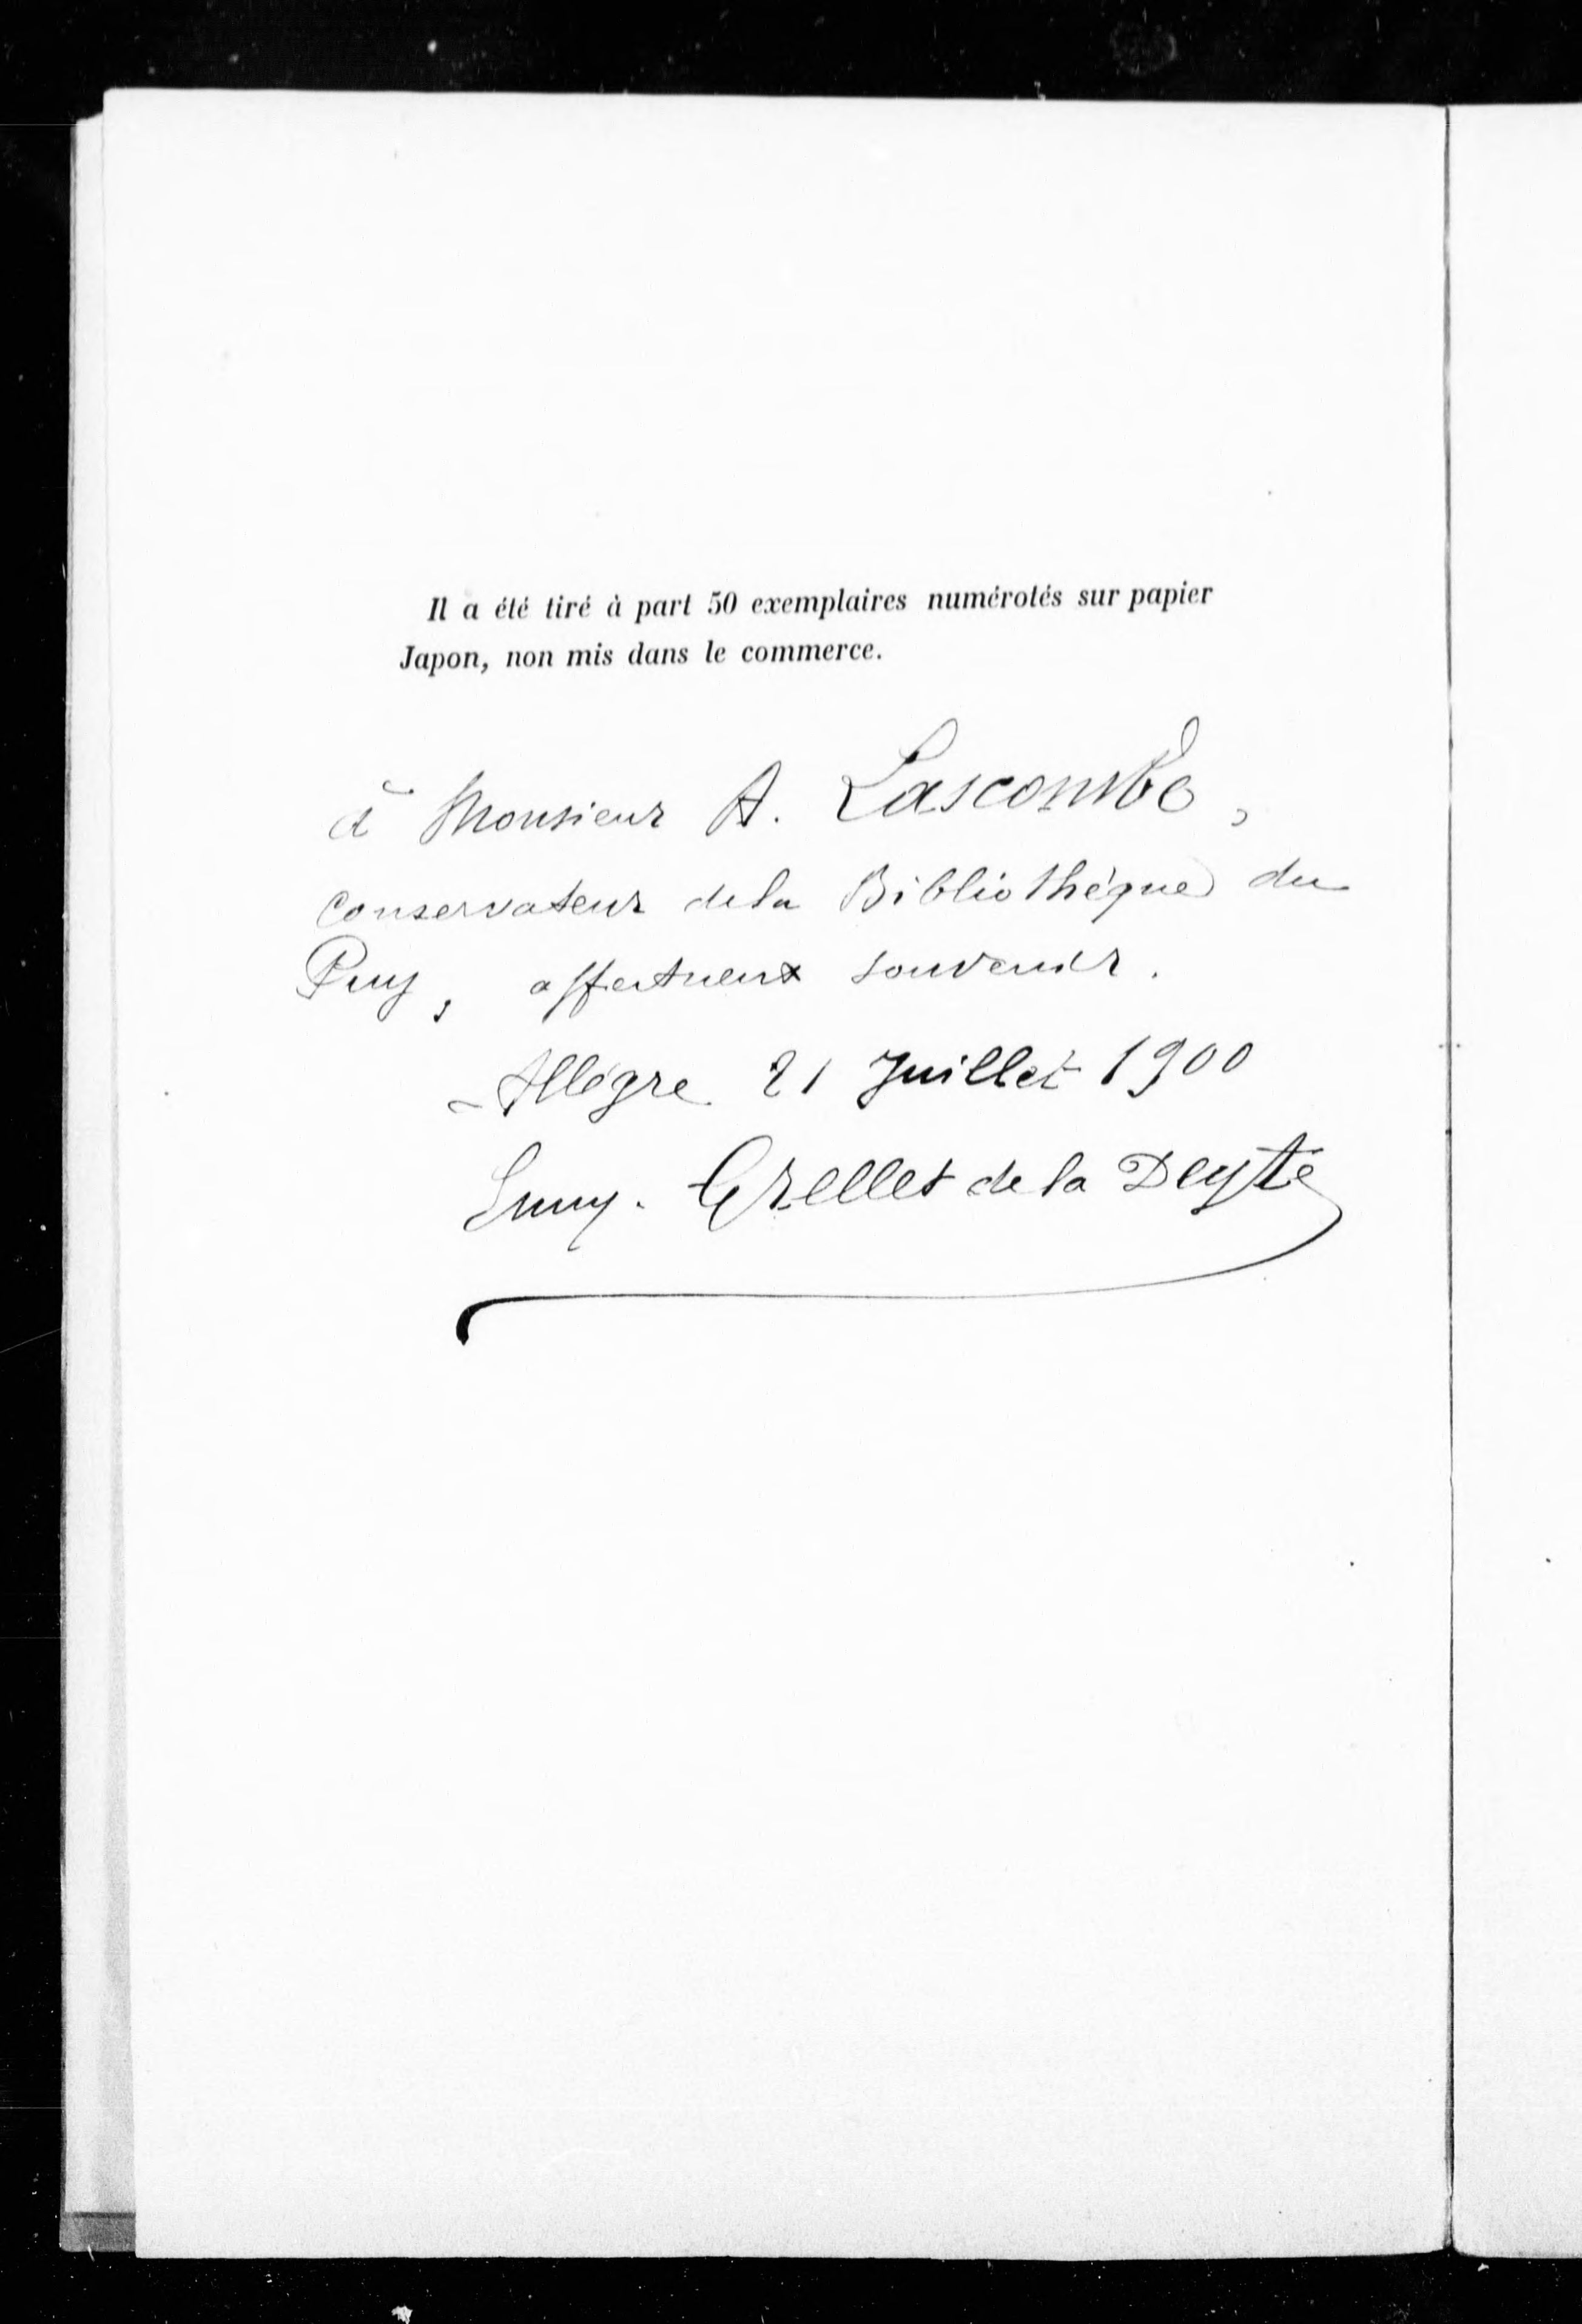 Il a été tiré à part 50 exemplaires numérotés sur papier
Japon, non mis dans le commerce.
à Monsieur A. Lascombe,
conservateur de la Bibliothèque du
Puy, affectueux souvenir.
Allègre 21 Juillet 1900
Grellet de la Deyte